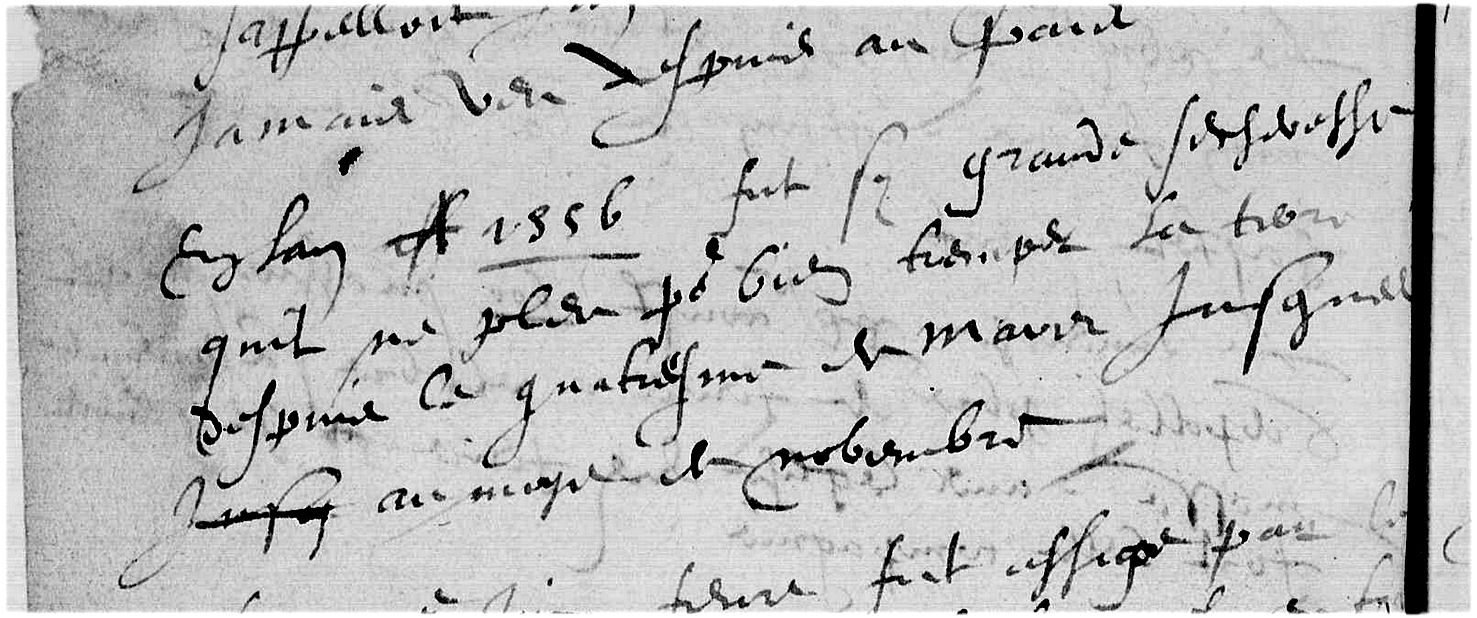 sappelloit
Jamais veu despuis au pais
En lan 1556 fut sy grande secheresse
quil ne pleu po bien tremper la terre
despuis le quatriesme de mars Jusques
Jusq au moys de novembre
terre fut assigé par